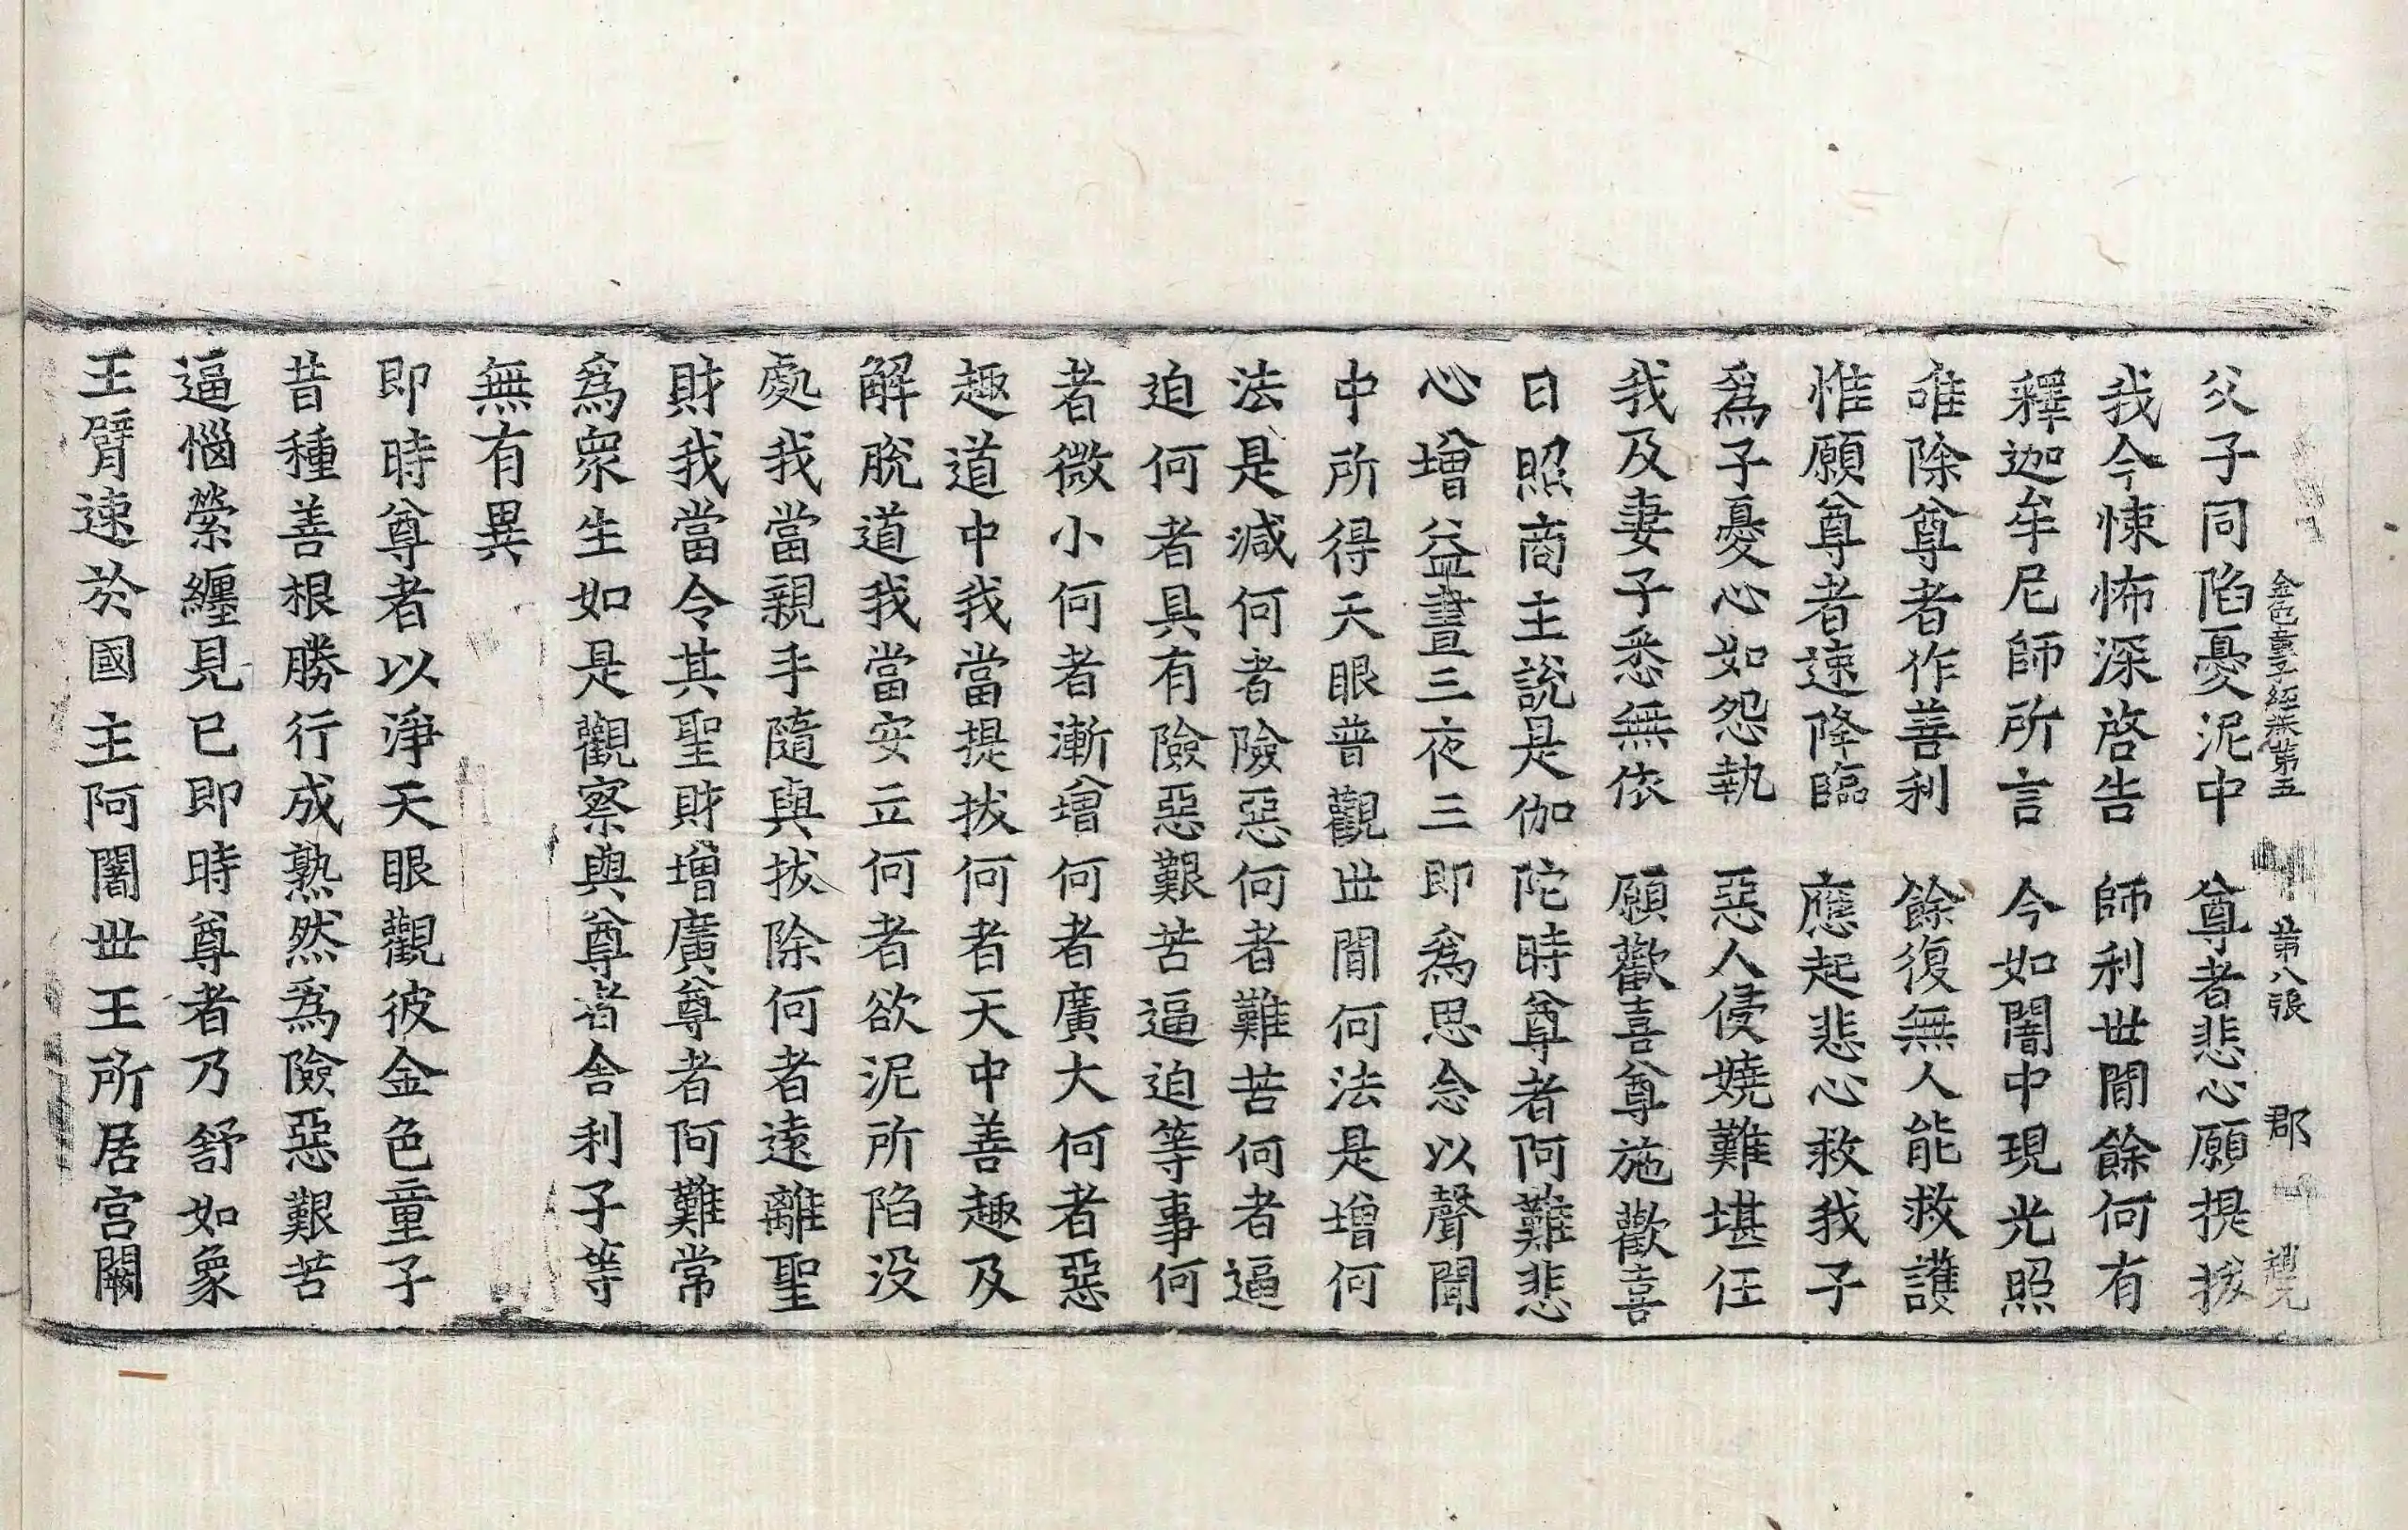 金色童子經卷第五　第八張　郡
父子同陷憂泥中　尊者悲心願提拔
我今悚怖深啓告　師利世間餘何有
釋迦牟尼師所言　今如闇中現光照
唯除尊者作善利　餘復無人能救護
惟願尊者速降臨　應起悲心救我子
爲子憂心如怨執　惡人侵嬈難堪任
我及妻子悉無依　願歡喜尊施歡喜
日照商主說是伽陀時尊者阿難悲
心增益晝三夜三即爲思念以聲聞
中所得天眼普觀世間何法是增何
法是減何者險惡何者難苦何者逼
迫何者具有險惡艱苦逼迫等事何
者微小何者漸增何者廣大何者惡
趣道中我當提拔何者天中善趣及
解脫道我當安立何者欲泥所陷没
處我當親手隨與拔除何者遠離聖
財我當令其聖財增廣尊者阿難常
爲衆生如是觀察與尊者舍利子等
無有異
即時尊者以淨天眼觀彼金色童子
昔種善根勝行成熟然爲險惡艱苦
逼惱縈纏見已即時尊者乃舒如象
王臂速於國主阿闍世王所居宮闕